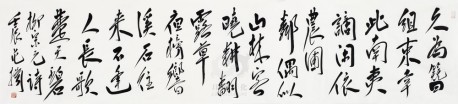 久為簪
組束幸
此南夷
謫閑依
農圃
鄰偶似
山林客
曉耕翻
露草
夜榜響
溪石往
來不逢
人長歌
楚天碧
柳宗元詩
壬辰